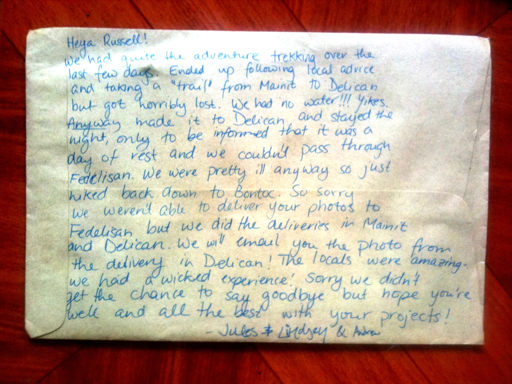 Heya Russell!
We had quite the adventure trekking over the
last few days. Ended up following local advice
and taking a "trail" from Mainit to Delican
but got horribly lost. We had no water!!! Yikes.
Anyway made it to Delican, and stayed the
night, only to be informed that it was a
day of rest and we couldn't pass through
Fedelisan. We were pretty ill anyway so just
hiked back down to Bontoc. So sorry
we weren't able to deliver your photos to
Fedelisan but we did the deliveries in Mainit
and Delican. We will email you the photo from
the delivery in Delican! The locals were amazing -
we had a wicked experience! Sorry we didn't
get the chance to say goodbye but hope you're
well and all the best with your projects!
- Jules & Lindsay &